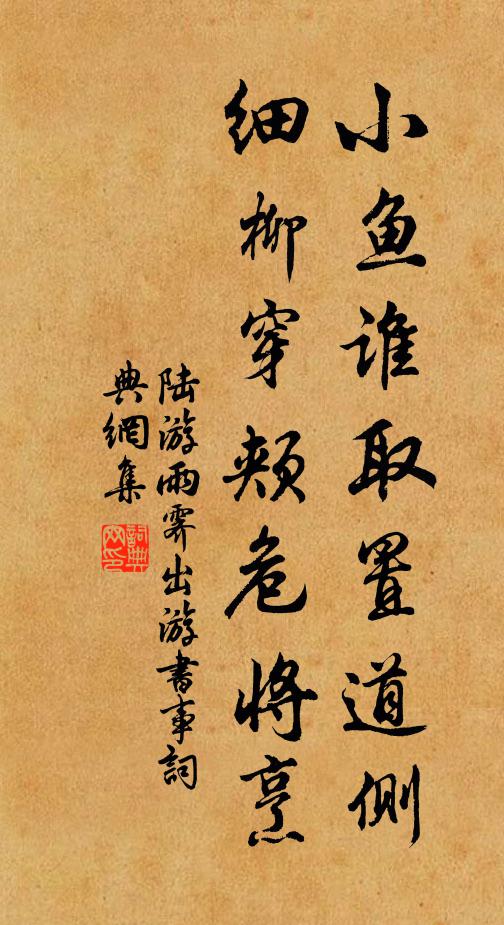 小鱼谁取置道侧
细柳穿颊危将烹
陆游雨霁出游書事詞
典網集
詞典
网印